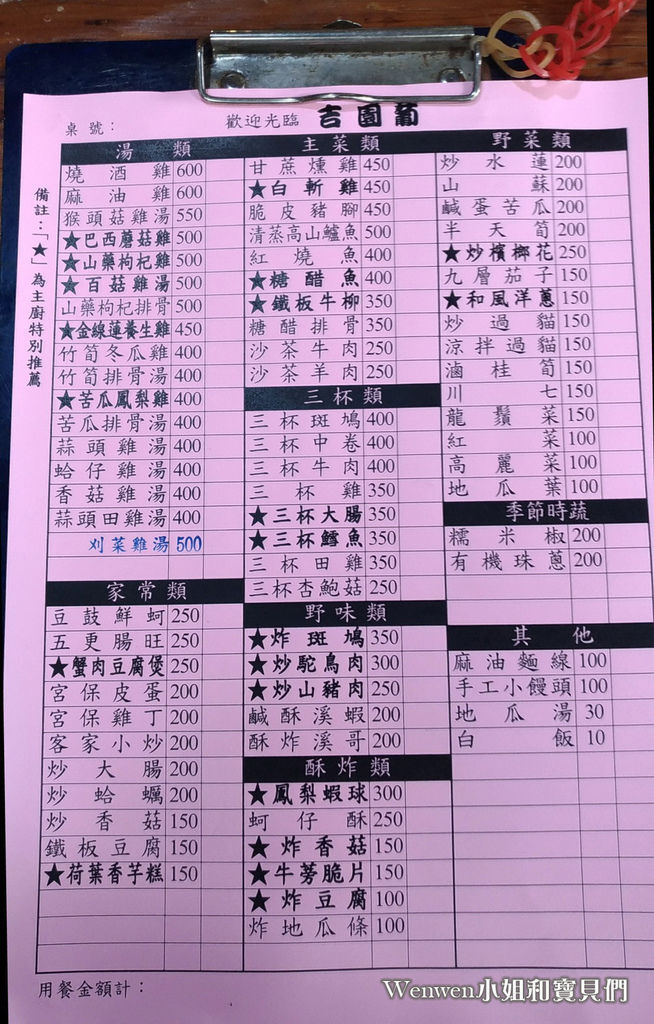 桌號：
歡迎光臨 吉園葡
備註：「★」為主廚特別推薦
湯類
燒酒雞 600
麻油雞 600
猴頭菇雞湯 550
★巴西蘑菇雞 500
★山藥枸杞雞 500
★百菇雞湯 500
山藥枸杞排骨 500
★金線蓮養生雞 450
竹筍冬瓜雞 400
竹筍排骨湯 400
★苦瓜鳳梨雞 400
苦瓜排骨湯 400
蒜頭雞湯 400
蛤仔雞湯 400
香菇雞湯 400
蒜頭田雞湯 400
刈菜雞湯 500
家常類
豆鼓鮮蚵 250
五更腸旺 250
★蟹肉豆腐煲 250
宮保皮蛋 200
宮保雞丁 200
客家小炒 200
炒大腸 200
炒蛤蠣 200
炒香菇 150
鐵板豆腐 150
★荷葉香芋糕 150
主菜類
甘蔗燻雞 450
★白斬雞 450
脆皮豬腳 450
清蒸高山鱸魚 500
紅燒魚 400
★糖醋魚 400
★鐵板牛柳 350
糖醋排骨 350
沙茶牛肉 250
沙茶羊肉 250
三杯類
三杯斑鳩 400
三杯中卷 400
三杯牛肉 400
三杯雞 350
★三杯大腸 350
★三杯鱈魚 350
三杯田雞 350
三杯杏鮑菇 250
野味類
★炸斑鳩 350
★炒駝鳥肉 300
★炒山豬肉 250
鹹酥溪蝦 200
酥炸溪哥 200
酥炸類
★鳳梨蝦球 300
蚵仔酥 250
★炸香菇 150
★牛蒡脆片 150
★炸豆腐 100
炸地瓜條 100
野菜類
炒水蓮 200
山蘇 200
鹹蛋苦瓜 200
半天筍 200
★炒檳榔花 250
九層茄子 150
★和風洋蔥 150
炒過貓 150
涼拌過貓 150
滷桂筍 150
川七 150
龍鬚菜 150
紅菜 100
高麗菜 100
地瓜葉 100
季節時蔬
糯米椒 200
有機珠蔥 200
其他
麻油麵線 100
手工小饅頭 100
地瓜湯 30
白飯 10
用餐金額計：
Wenwen小姐和寶貝們